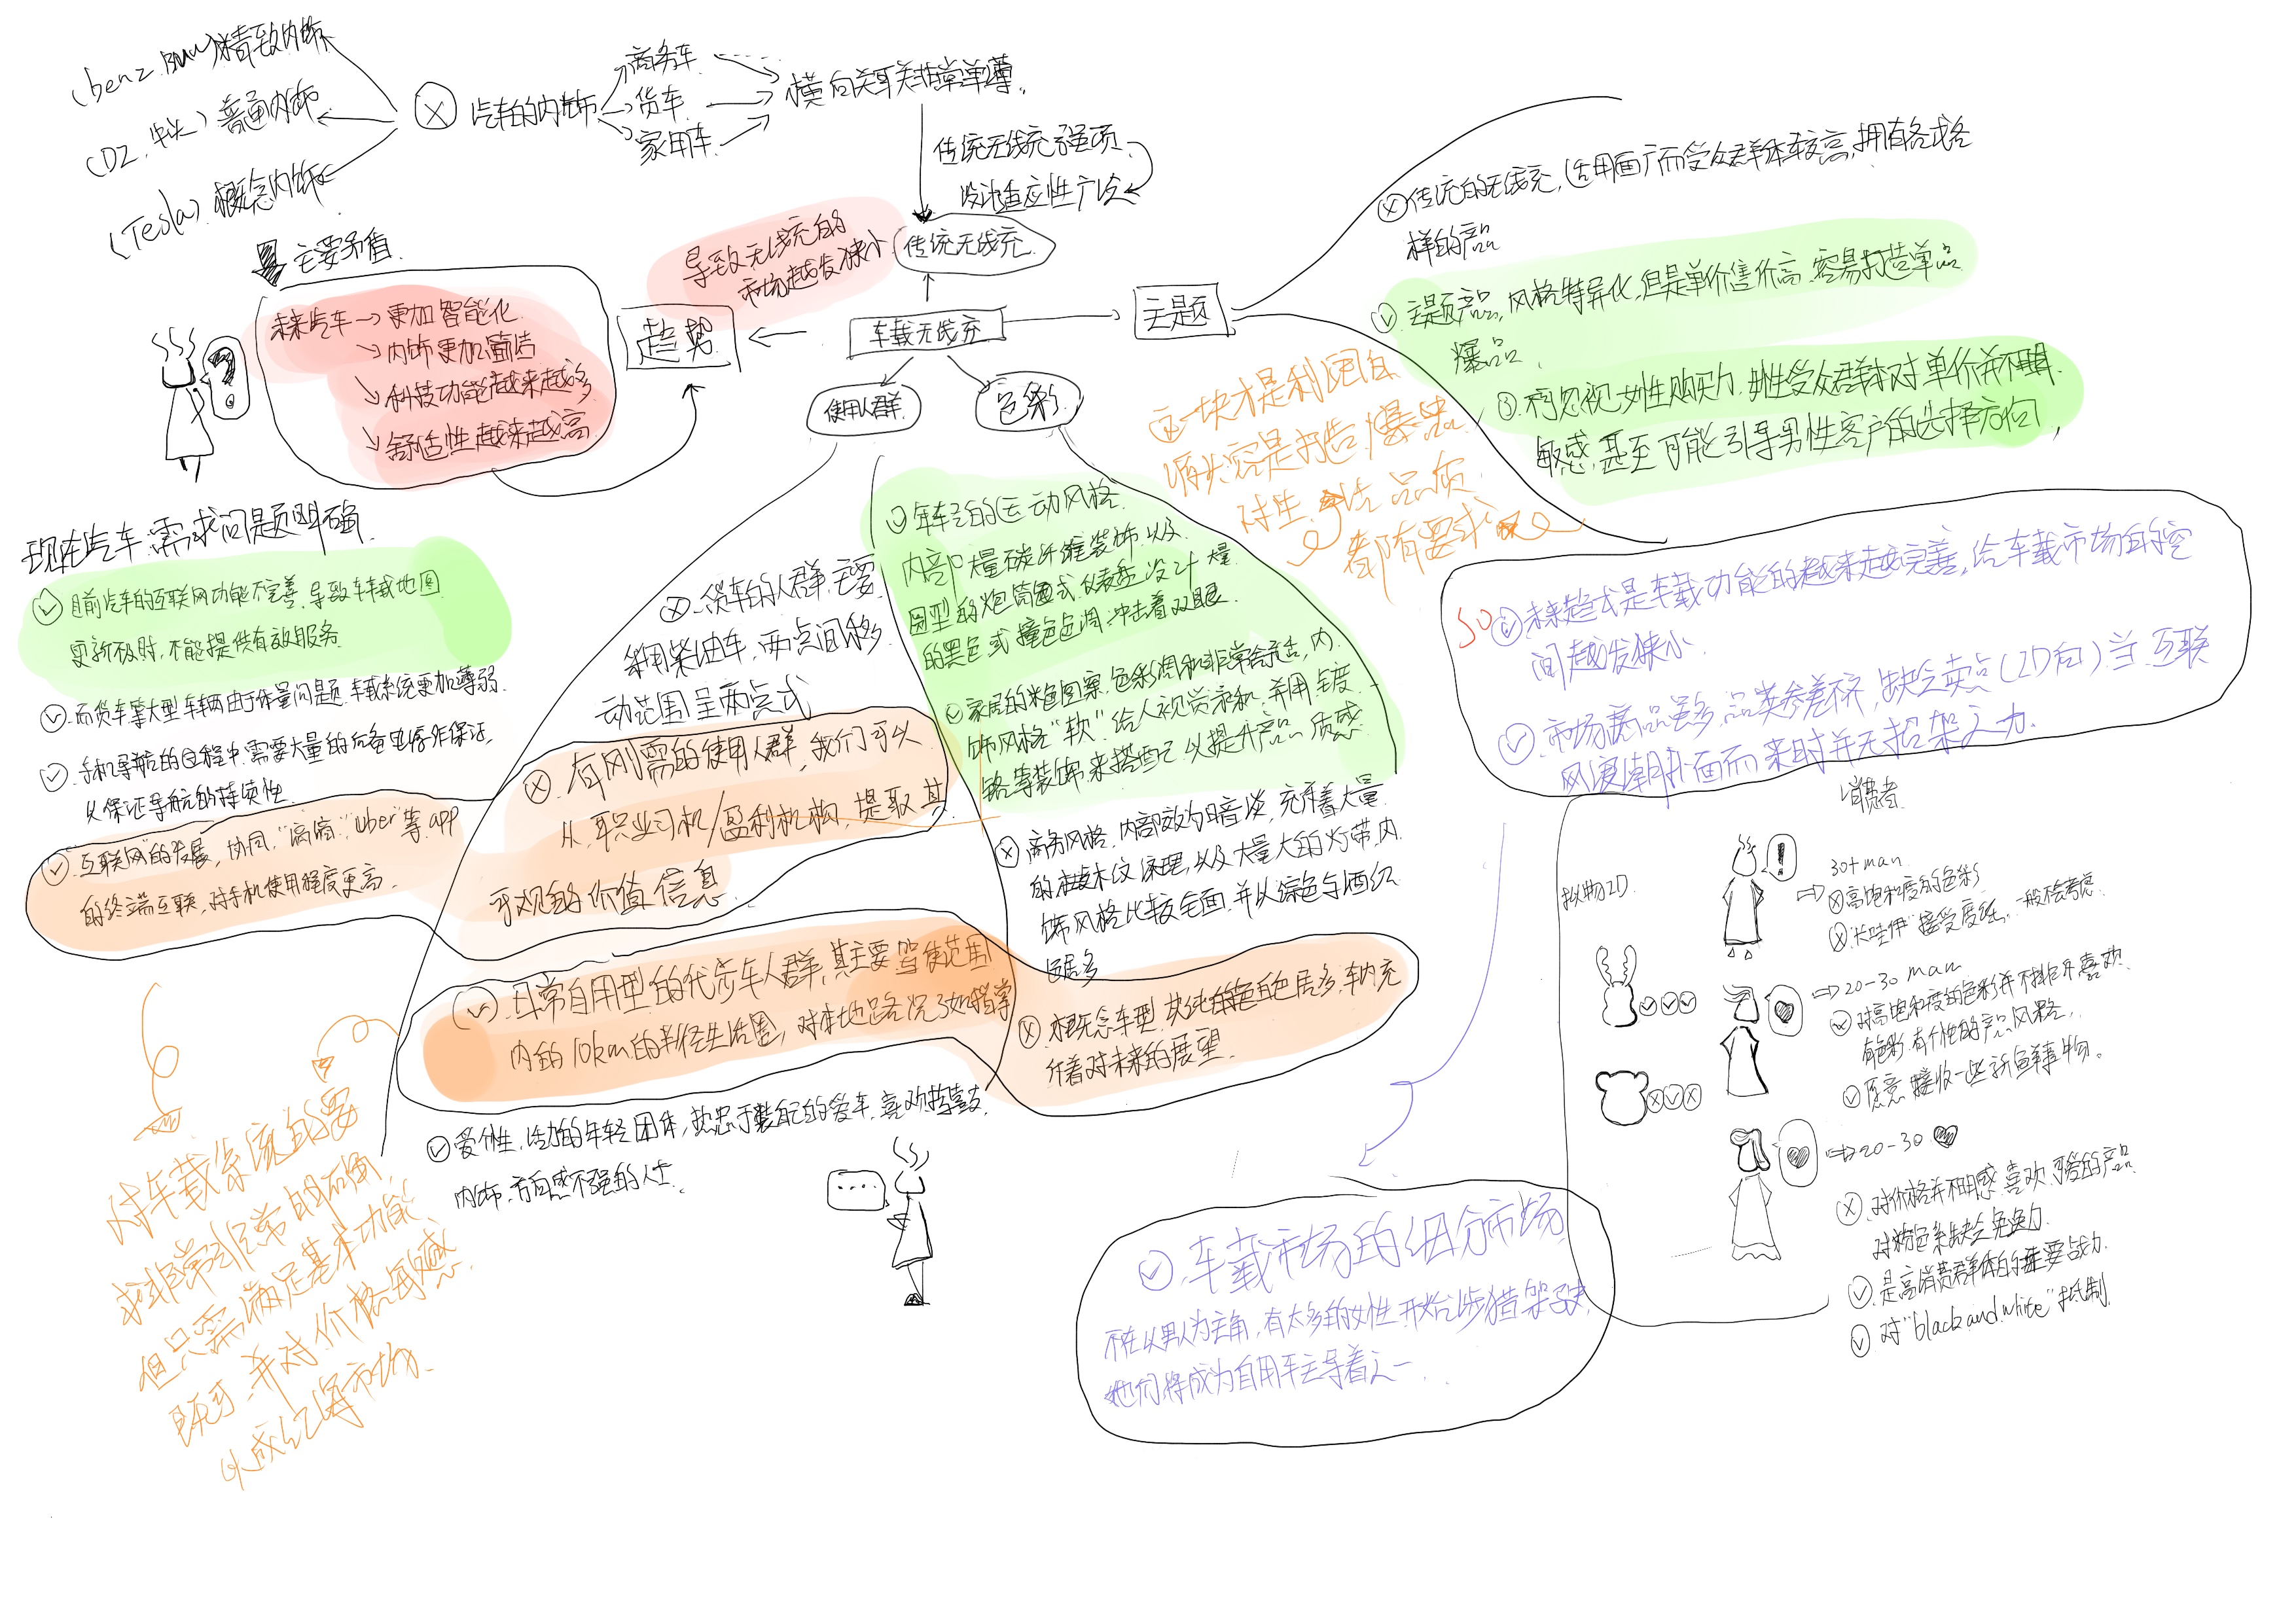 (benz BMW)精致内饰
普通内饰
(Tesla)概念内饰
汽车的内饰
商务车
货车
家用车
横向关联非常单薄.
传统无线充强项
设计适应性广泛
传统无线充.
导致无线充的
市场越发狭小
主要矛盾
未来汽车→更加智能化
内饰更加简洁
科技功能越来越多
舒适性越来越高
趋势
车载无线充
主题
使用人群.
色彩.
传统的无线充,适用面广而受众群体较高,拥有各式各
样的产品
主题产品,风格特异化,但是单价售价高.容易打造单品
爆品.
不可忽视女性购买力.女性受众群体对单价并不明
敏感,甚至可能引导男性客户的选择方向,
这一块才是利润
源头容易打造爆品
对生活品质
都有要求
现在汽车需求问题明确
目前汽车的互联网功能不完善,导致车载地图
更新不及时,不能提供有效服务
而货车等大型车辆由于体量问题.车载系统更加薄弱.
手机导航的过程中.需要大量的后备电源作保证,
以保证导航的持续性
互联网的发展,协同,"滴滴""uber"等app
的终端互联,对手机使用程度更高.
对车载系统的要
求非常非常的明确,
但只需满足基本功能
既可,并对价格敏感
以成红海市场.
货车的人群主要
利用柴油车,两点间移
动范围呈两点式
有刚需的使用人群,我们可以
从职业司机/盈利机构,提取其
可观的价值信息
日常自用型的代步车人群,其主要驾驶范围
内的10km的半径生活圈,对本地路况了如指掌
爱个性,活力的年轻团体,热忠于装自己的爱车,喜欢捣鼓
内饰,方向感不强的人士.
年轻的运动风格.
内部大量碳纤维装饰,以及
圆型的炮筒式仪表盘设计大量
的黑色或撞色色调,冲击着双眼.
家居的米色图案,色彩柔和非常舒适,内
饰风格"软"给人视觉柔和,并用镀
铬等装饰来搭配以提升产品质感.
商务风格,内部较为暗淡,充斥着大量
的木纹原理,以及大量大的灯带,内
饰风格比较全面,并以棕色与酒红
居多
概念车型,其纯的色白色居多,车内充
斥着对未来的展望.
SO
未来趋式是车载功能的越来越完善,给车载市场的空
间越发狭小.
市场商品虽多,品类参差不齐,缺乏卖点(2D向)当互联
风浪潮扑面而来时并无招架之力.
车载市场的细分市场
不在以男人为主角,有太多的女性开始涉猎驾驶,
她们将成为自用车主导者之一.
消费者
拟物2D.
30+man
高饱和度的色彩
"卡哇伊"接受度低,一般不会考虑.
20-30 man
对高饱和度的色彩并不排斥喜欢
有色彩有个性的产品风格,
愿意接收一些新鲜事物。
20-30
对价格并不明感,喜欢可爱的产品
对粉色系缺乏免疫力.
是高消费群体的重要战力.
对"black and white"抵制